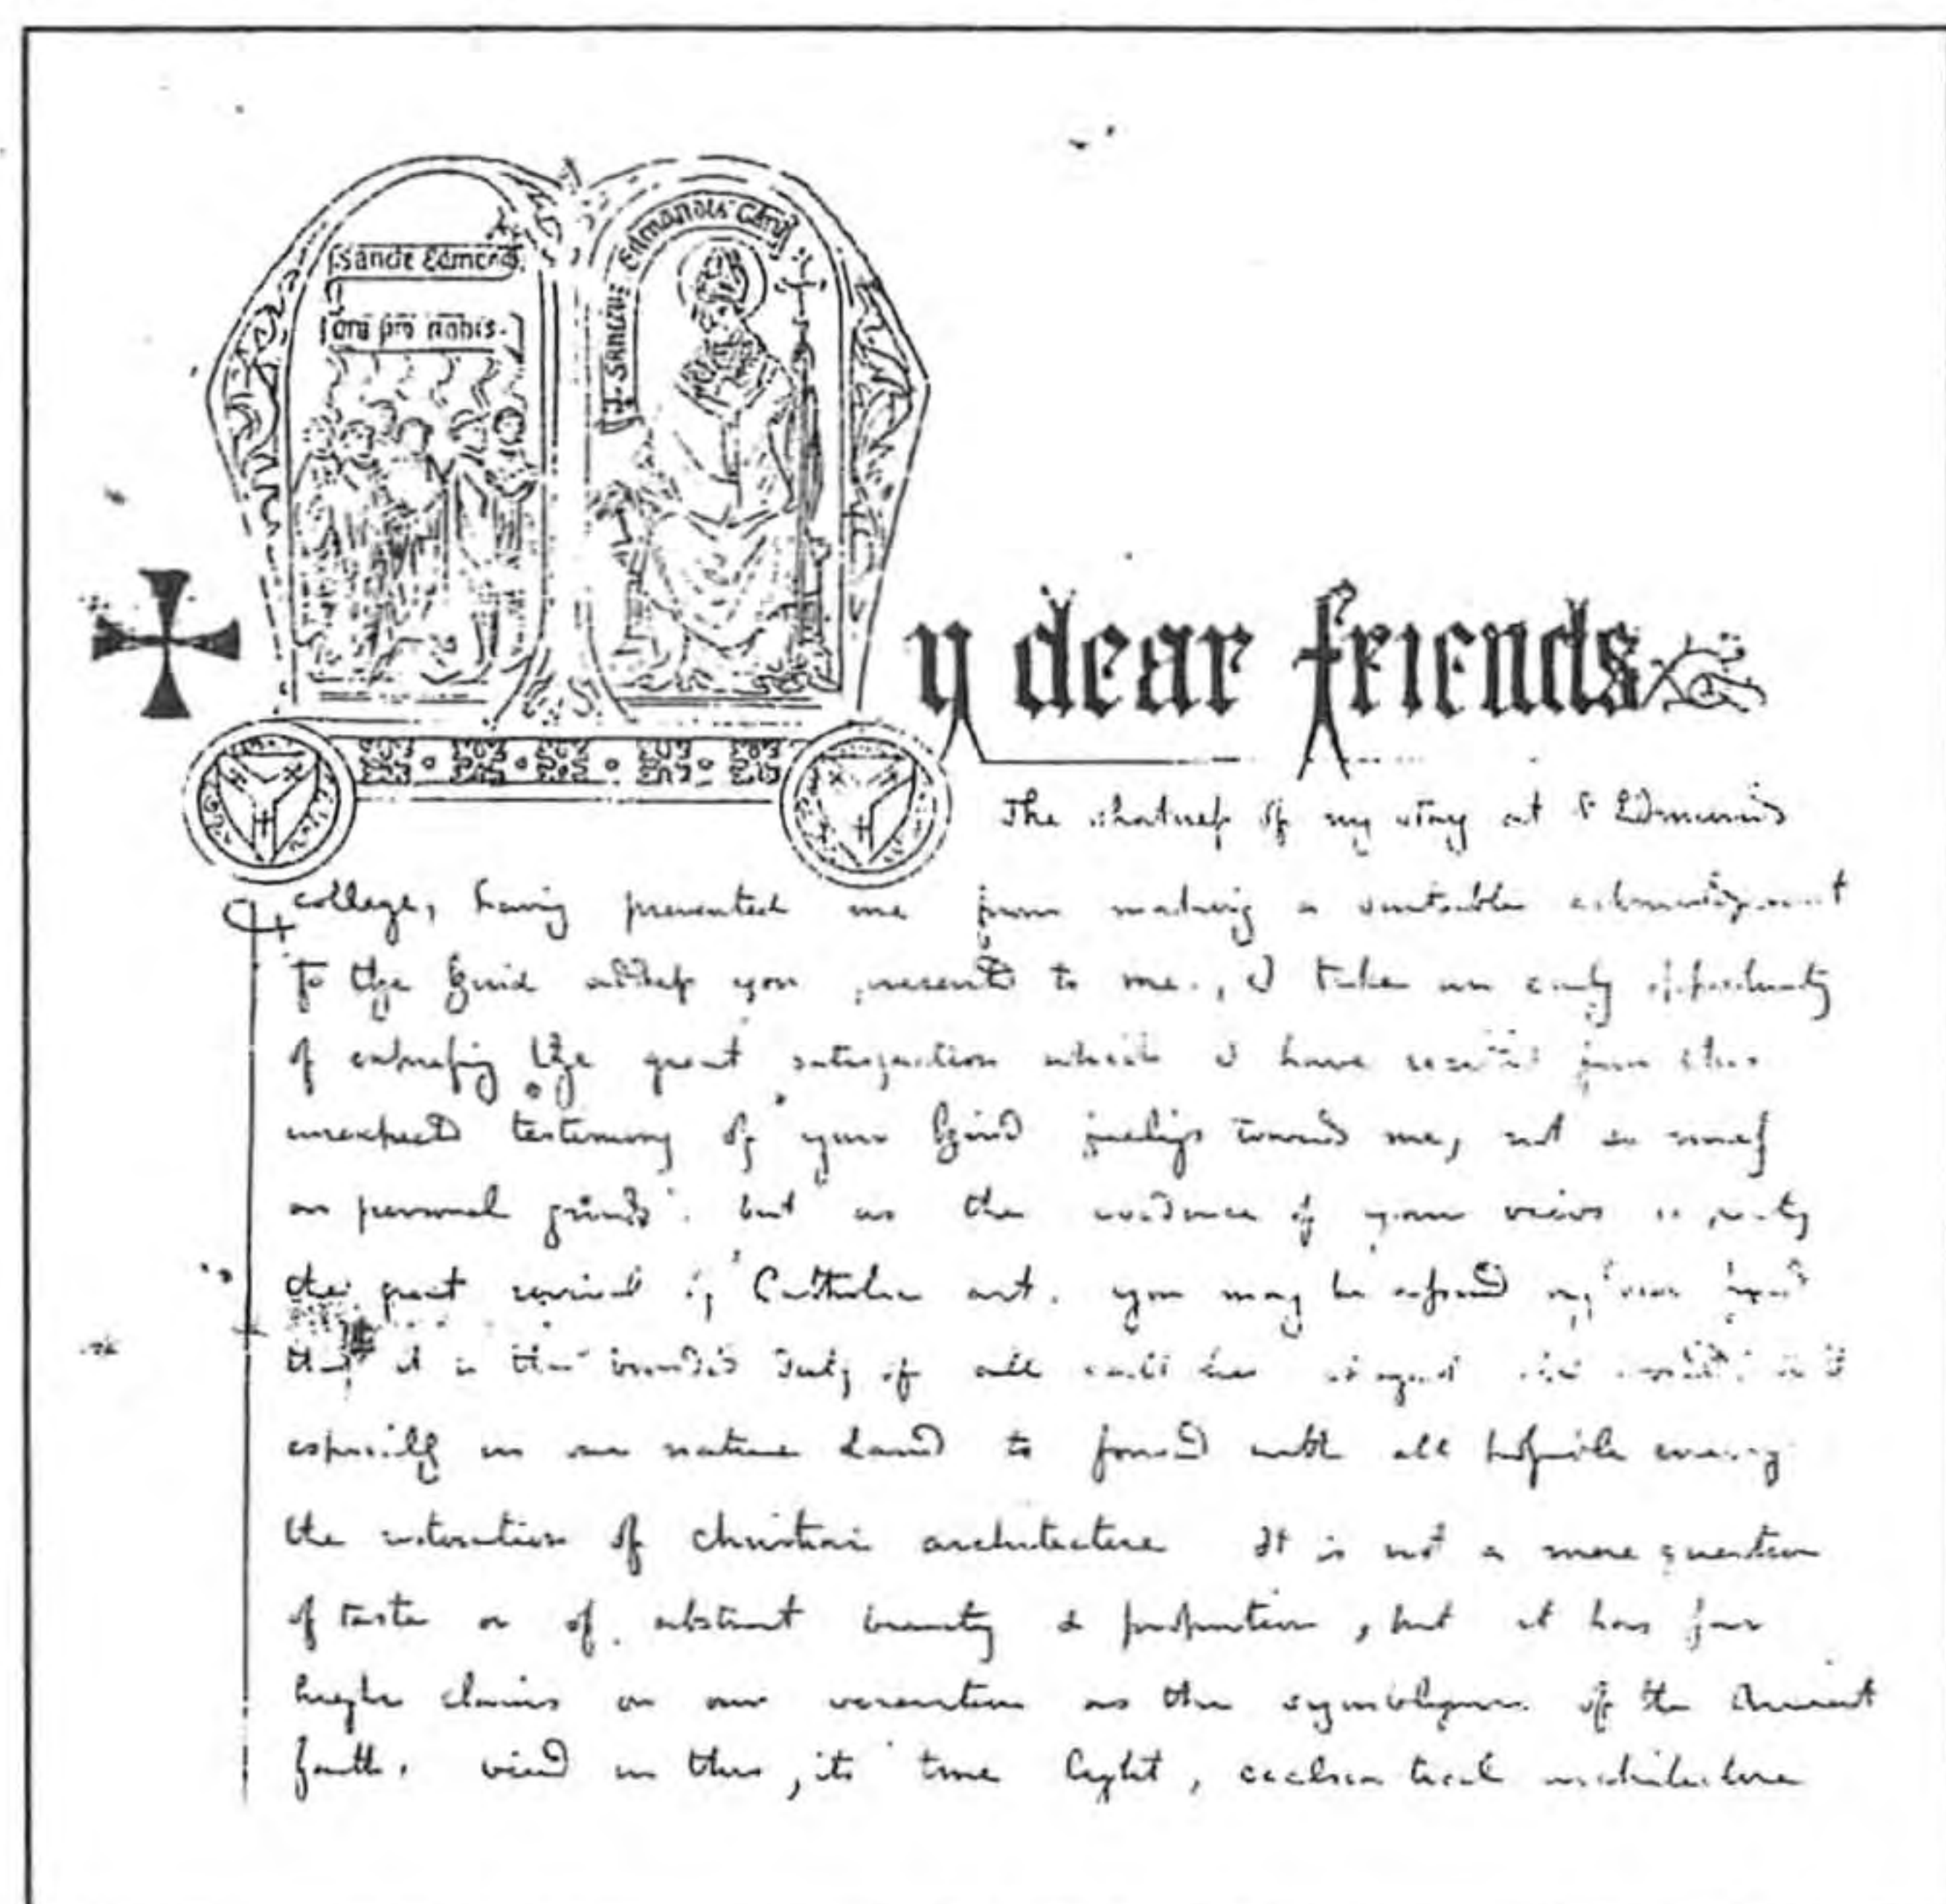 Sancte Edmunde
ora pro nobis.
Sanctus Edmundus
My dear friends
The shortness of my stay at St Edmunds
college, having prevented me from making a suitable acknowledgment
to the kind address you presented to me, I take an early opportunity
of expressing the great satisfaction which I have received from this
unexpected testimony of your kind feelings towards me, not so much
on personal grounds. but as the evidence of your views
the great revival of Catholic art. you may be assured
that it is the bounden duty of all
especially in our native Land to forward with all possible energy
the restoration of christian architecture It is not a mere question
of taste or of abstract beauty & proportion, but it has far
higher claims on our veneration as the symbolism of the Ancient
faith. viewed in this, its true light, ecclesiastical architecture